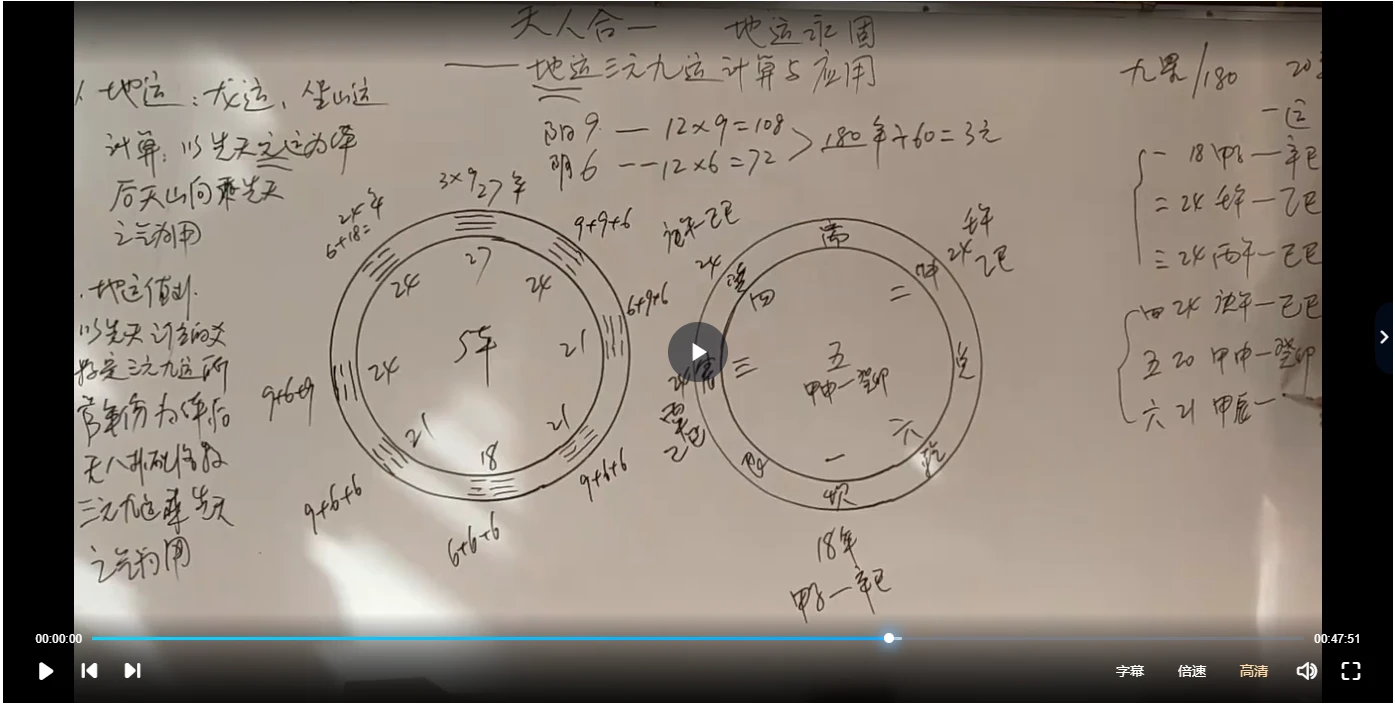 天人合一 地运永固
——地运三元九运计算与应用
地运：龙运、坐山运
计算：以先天元运为体
后天山向乘先天
之气为用
地运值卦
以先天
三元九运乘先天
之气为用
阳9 — 12×9=108
阴6 -- 12×6=72
180年÷60=3元
九星/180
20
一运
一 18 甲子—辛巳
二 24 壬午—乙巳
三 24 丙午—己巳
四 24 庚午—乙巳
五 20 甲申—癸卯
六 21 甲辰—
3×9 27年
24年
6+18=
9+9+6
6+9+6
9+6+6
6+6+6
9+6+6
9+6+9
27
24
24
21
24
21
21
18
5年
庚午—乙巳
24
壬午
24 乙巳
24
乙巳
离
坤
兑
乾
坎
艮
震
二
三
四
五
甲申—癸卯
六
一
18年
甲子—辛巳
00:00:00
00:47:51
字幕
倍速
高清